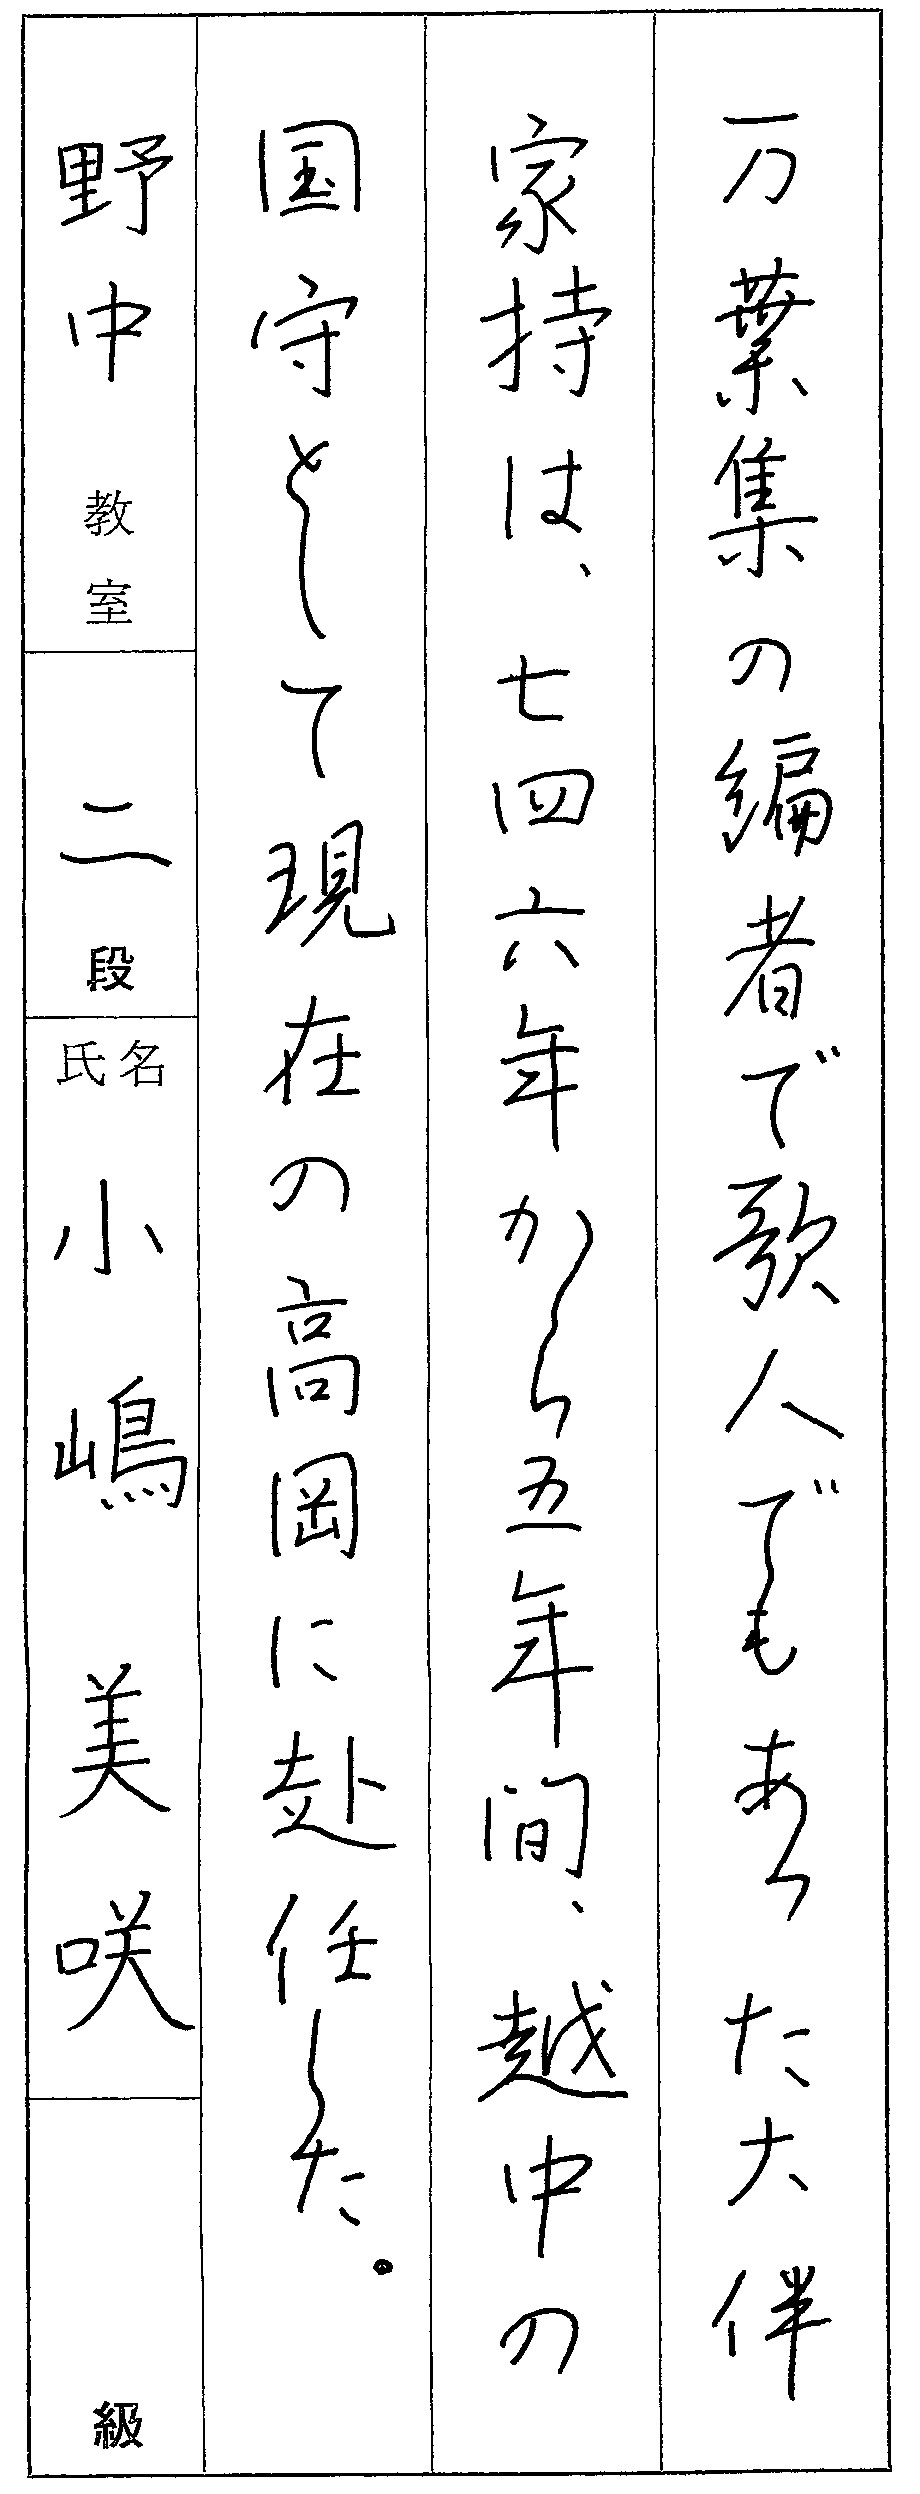 万葉集の編者で歌人でもあった大伴
家持は、七四六年から五年間、越中の
国守として現在の高岡に赴任した。
野中教室
二段
氏名
小嶋美咲
級